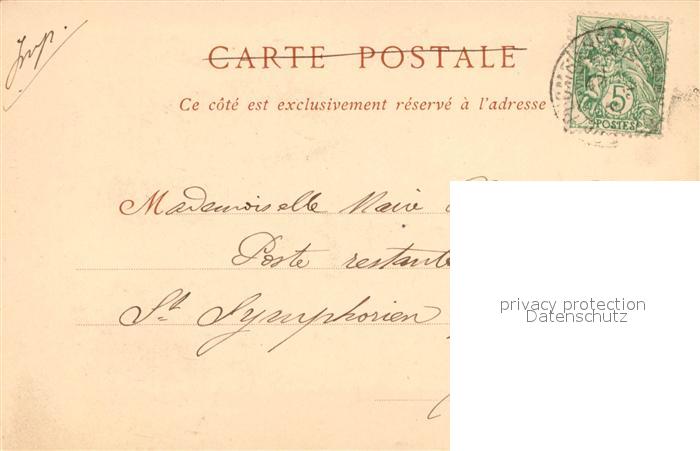 Imp.
CARTE POSTALE
Ce côté est exclusivement réservé à l'adresse
5c
POSTES
Mademoiselle Marie
Poste restante
St Symphorien
privacy protection
Datenschutz